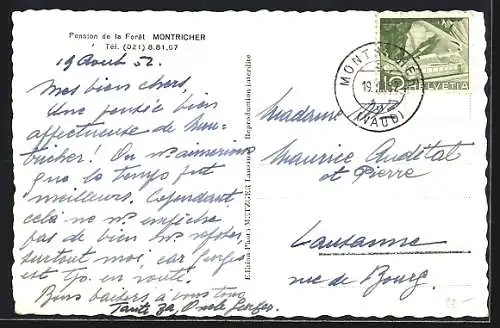 Pension de la Forêt MONTRICHER
Tél. (021) 8.81.07
19 Août 52.
Mes bien chers,
Une pensée bien
affectueuse de Mon-
tricher! On n/s aimerions
que le temps fut
meilleurs. Cependant
cela ne n/s empêche
pas de bien n/s reposer
surtout moi, car Georges
est tjs. en route.
Bons baisers à vous tous
Tante Oncle Georges.
Edition Photo METZGER Lausanne Reproduction interdite
MONTRICHER
(VAUD)
10 HELVETIA
Madame
Maurice Audétat
et Pierre
Lausanne
rue de Bourg.